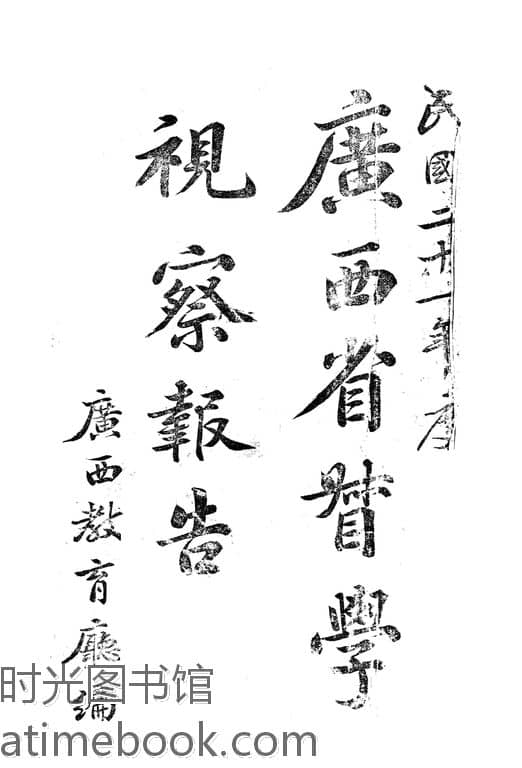 民國二十一年度
廣西省督學
視察報告
廣西教育廳編
时光图书馆
atimebook.com